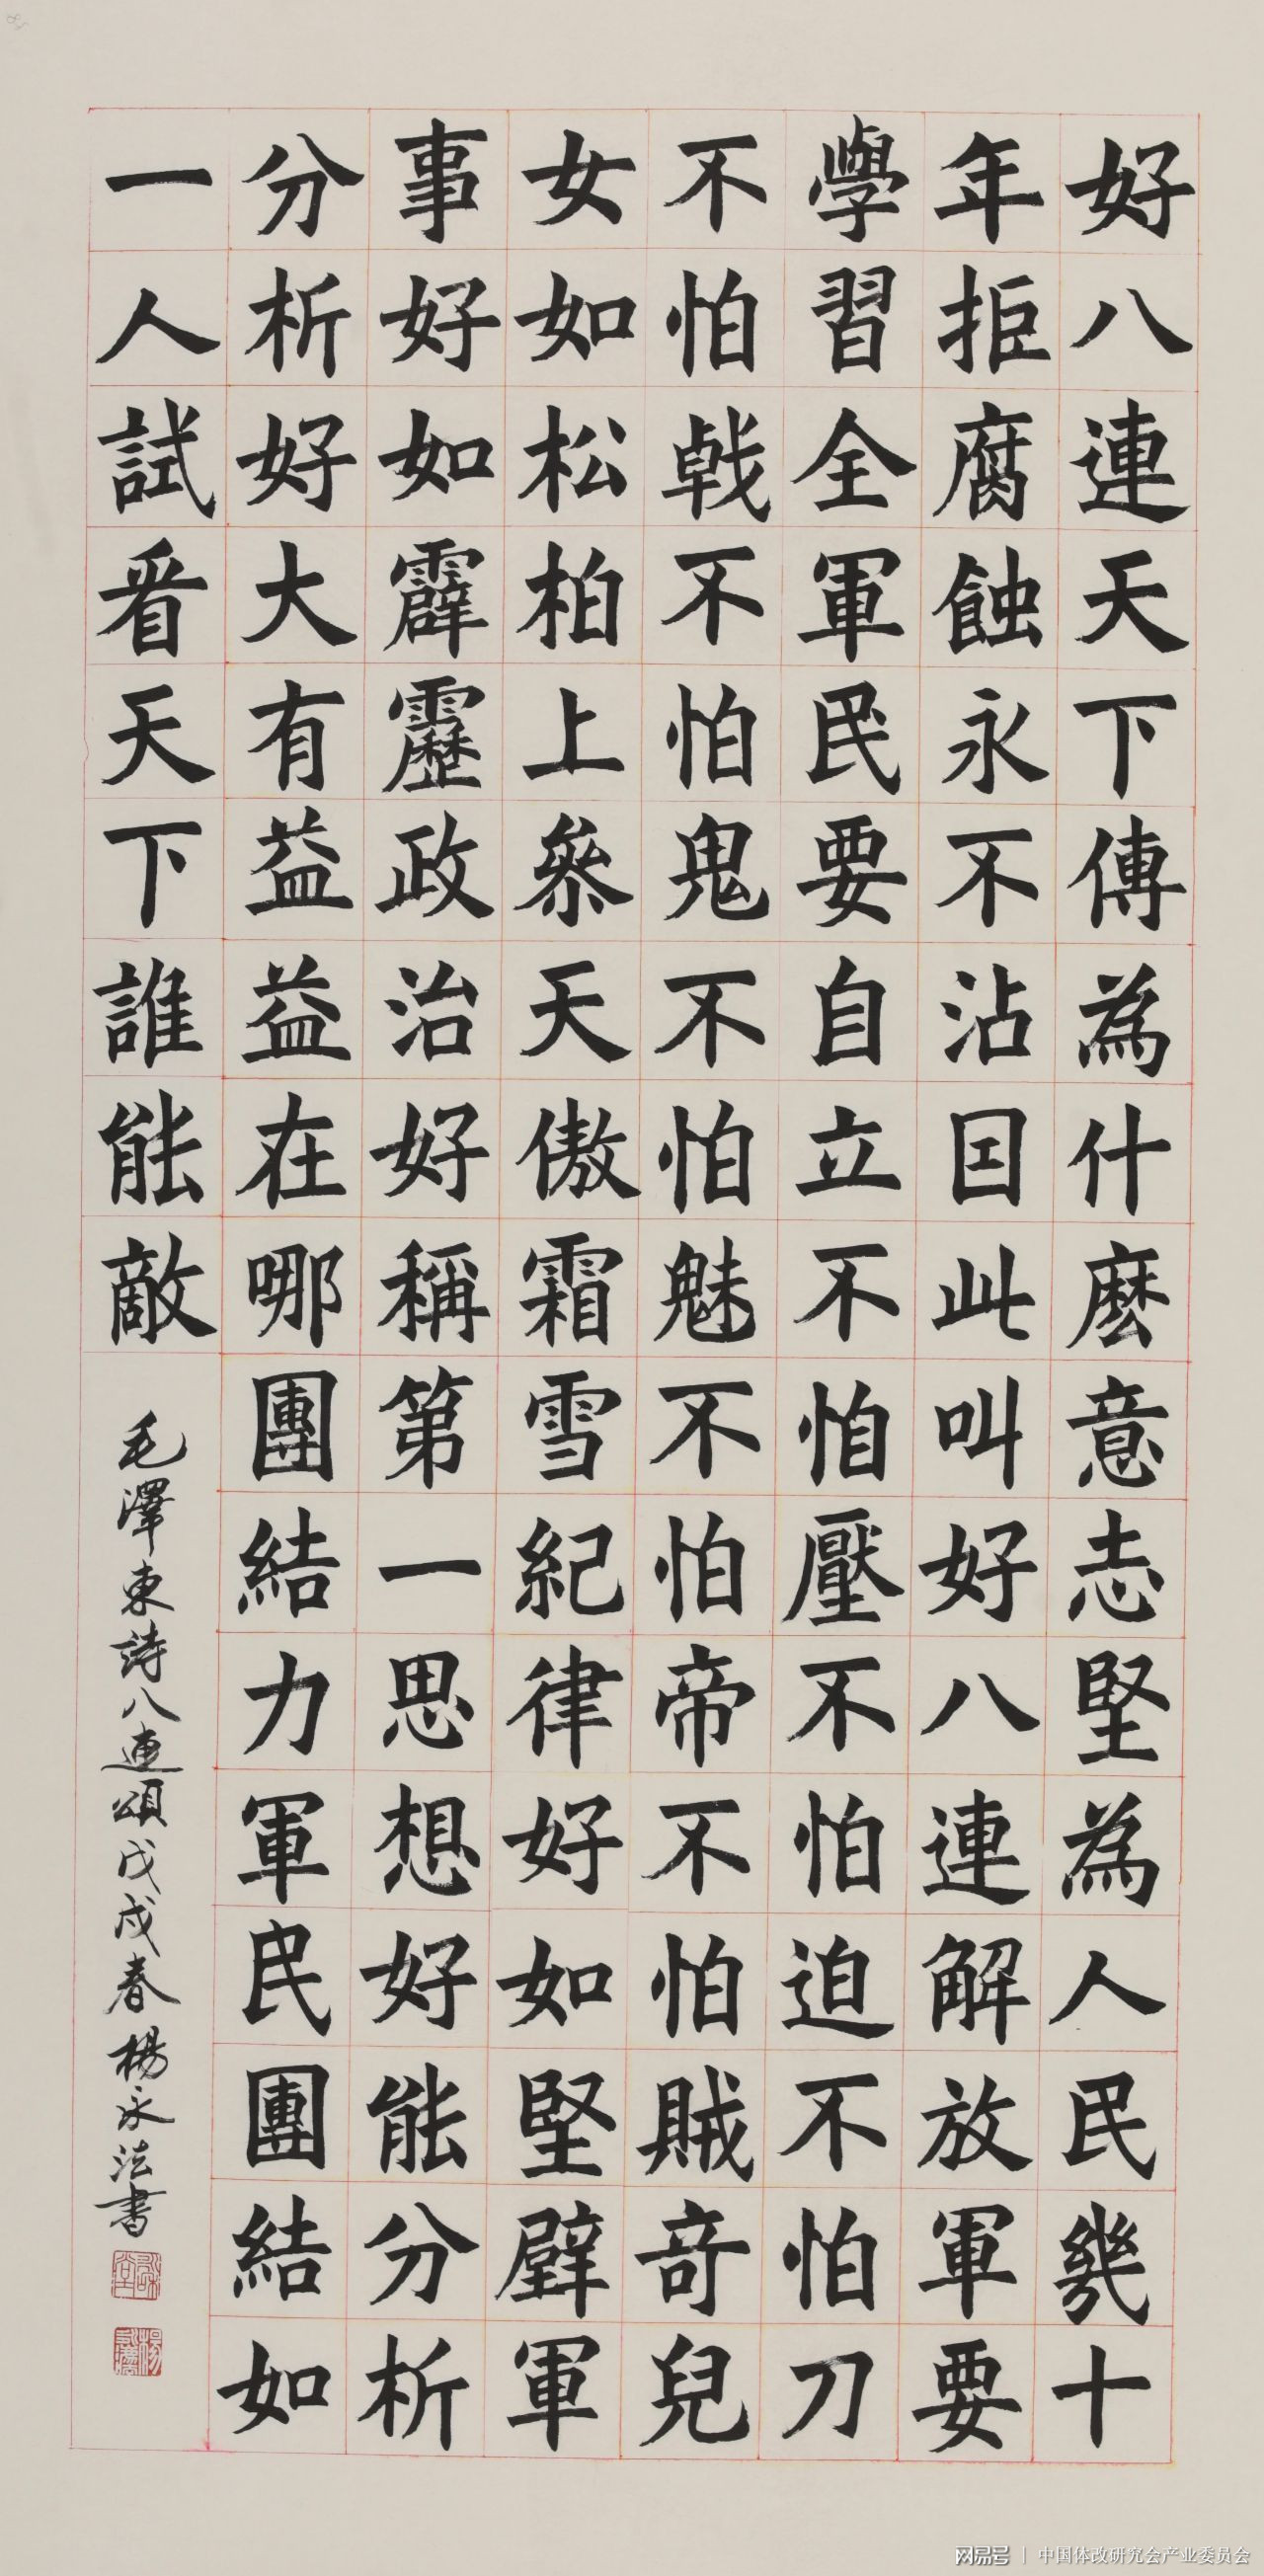 好八連天下傳為什麽意志堅為人民幾十
年拒腐蝕永不沾因此叫好八連解放軍要
學習全軍民要自立不怕壓不怕迫不怕刀
不怕戟不怕鬼不怕魅不怕帝不怕賊奇兒
女如松柏上參天傲霜雪紀律好如堅壁軍
事好如霹靂政治好稱第一思想好能分析
分析好大有益益在哪團結力軍民團結如
一人試看天下誰能敵
毛澤東詩八連頌戊戌春楊永法書
网易号 | 中国体改研究会产业委员会